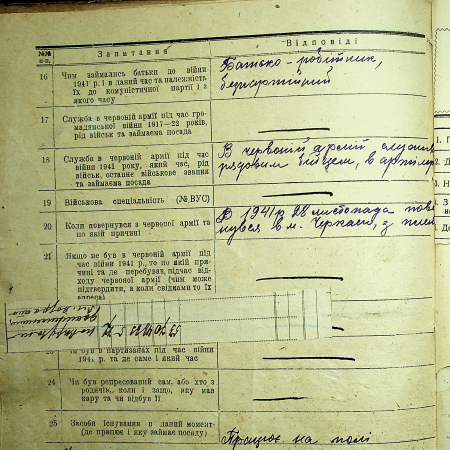 №№
п.п.
Запитання
Відповіді
16
Чим займались батьки до війни
1941 р. і в даний час та належність
їх до комуністичної партії і з
якого часу
Батько - робітник,
безпартійний
17
Служба в червоній армії під час гро-
мадянської війни 1917—22 років,
рід військ та займаема посада
18
Служба в червоній армії під час
війни 1941 року, який час, рід
військ, останнє військове звання
та займаема посада
В червоній армії служив
рядовим бійцем, в
19
Військова спеціальність (№ ВУС)
20
Коли повернувся з червоної армії та
по якій причині
В 1941 р 28 листопада пове
нувся в м. Черкаси, з
21
Якщо не був в червоній армії під
час війни 1941 р., то по якій при-
чині та де перебував, підчас від-
ходу червоної армії (чим може
підтвердити, а коли свідками то їх
адреса)
23
Чи був в партизанах під час війни
1941 р. та де саме і який час
24
Чи був репресований сам, або хто з
родичів, коли і защо, яку мав
кару та чи відбув її
25
Засоби існування в даний момент
(де працює і яку займає посаду)
Працює на полі